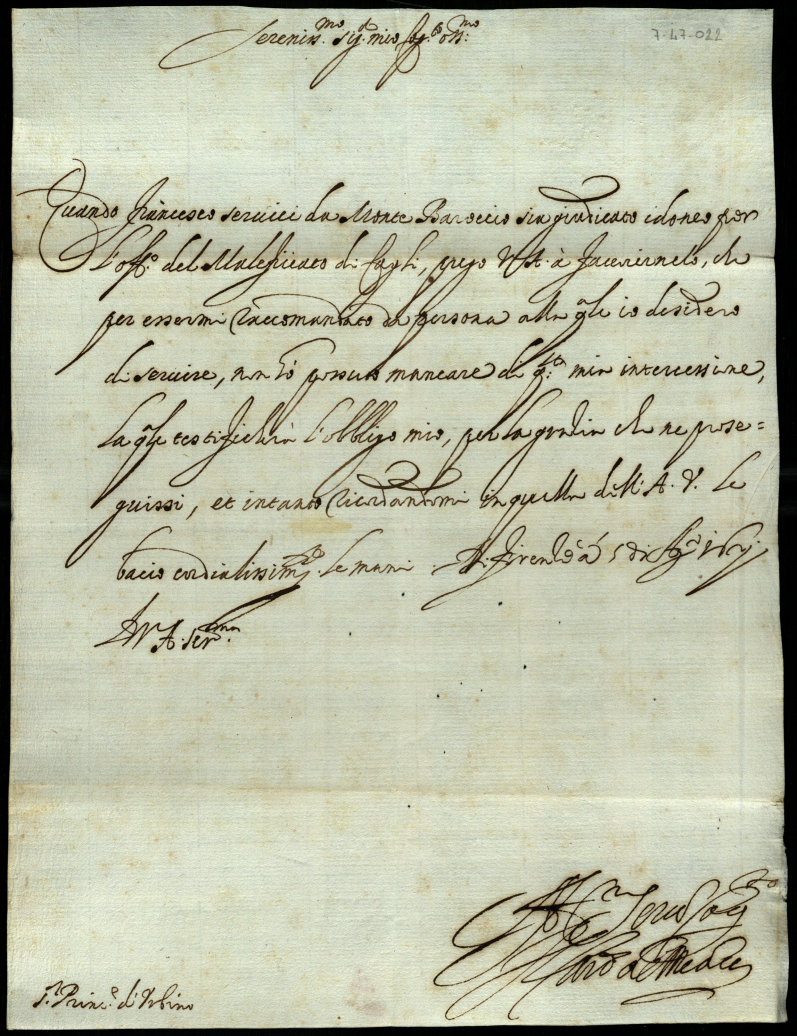 7-47-022
Sereniss.mo sig.r mio oss.mo
Quando Francesco seruici da Monte Baroccio sia giudicato idoneo per
l'off.o del Maleficato di Cagli, prego V.A. à fauorirnelo, che
per essermi raccomandato da persona alla q.le io desidero
di seruire, non hò possuto mancare di q.sta mia intercessione,
la q.le testificherà l'obbligo mio, per la grazia che ne conse=
guissi, et intanto ricordandomi in quella di V. A. V. le
bacio cordialissim.te le mani Di Firenze à 5 di
Di V. A. Ser.ma
Ser.re
de Medici
S.r Princ.e d'Vrbino